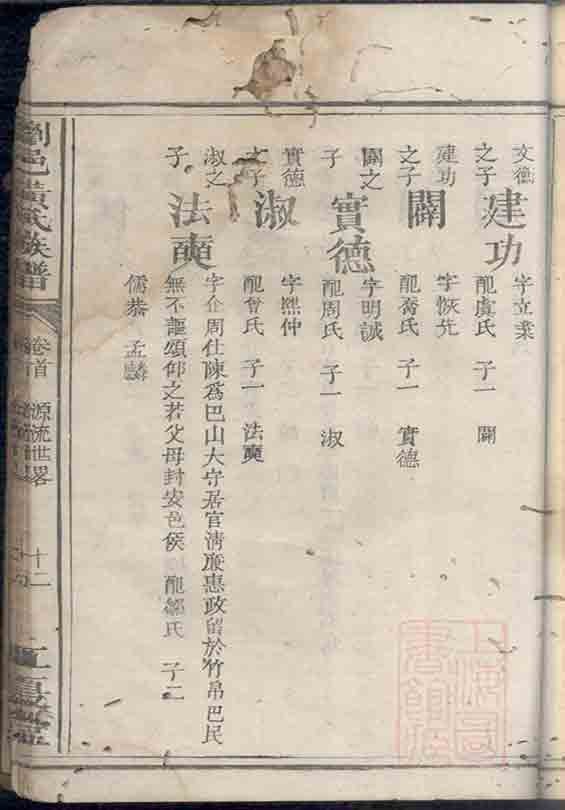 文德
之子
建功
字立業
配虞氏 子一 闢
建功
之子
闢
字恢先
配喬氏 子一 實德
闢之
子
實德
字明誠
配周氏 子一 淑
實德
之子
淑
字熙仲
配曾氏 子一 法奭
淑之
子
法奭
字企周仕陳爲巴山大守居官淸廉惠政留於竹帛巴民
無不謳頌仰之若父母封安邑侯 配鄒氏 子二
儒恭 孟麟
瀏邑黃氏族譜
卷首 源流世畧
十二
江夏堂
上海圖書館藏